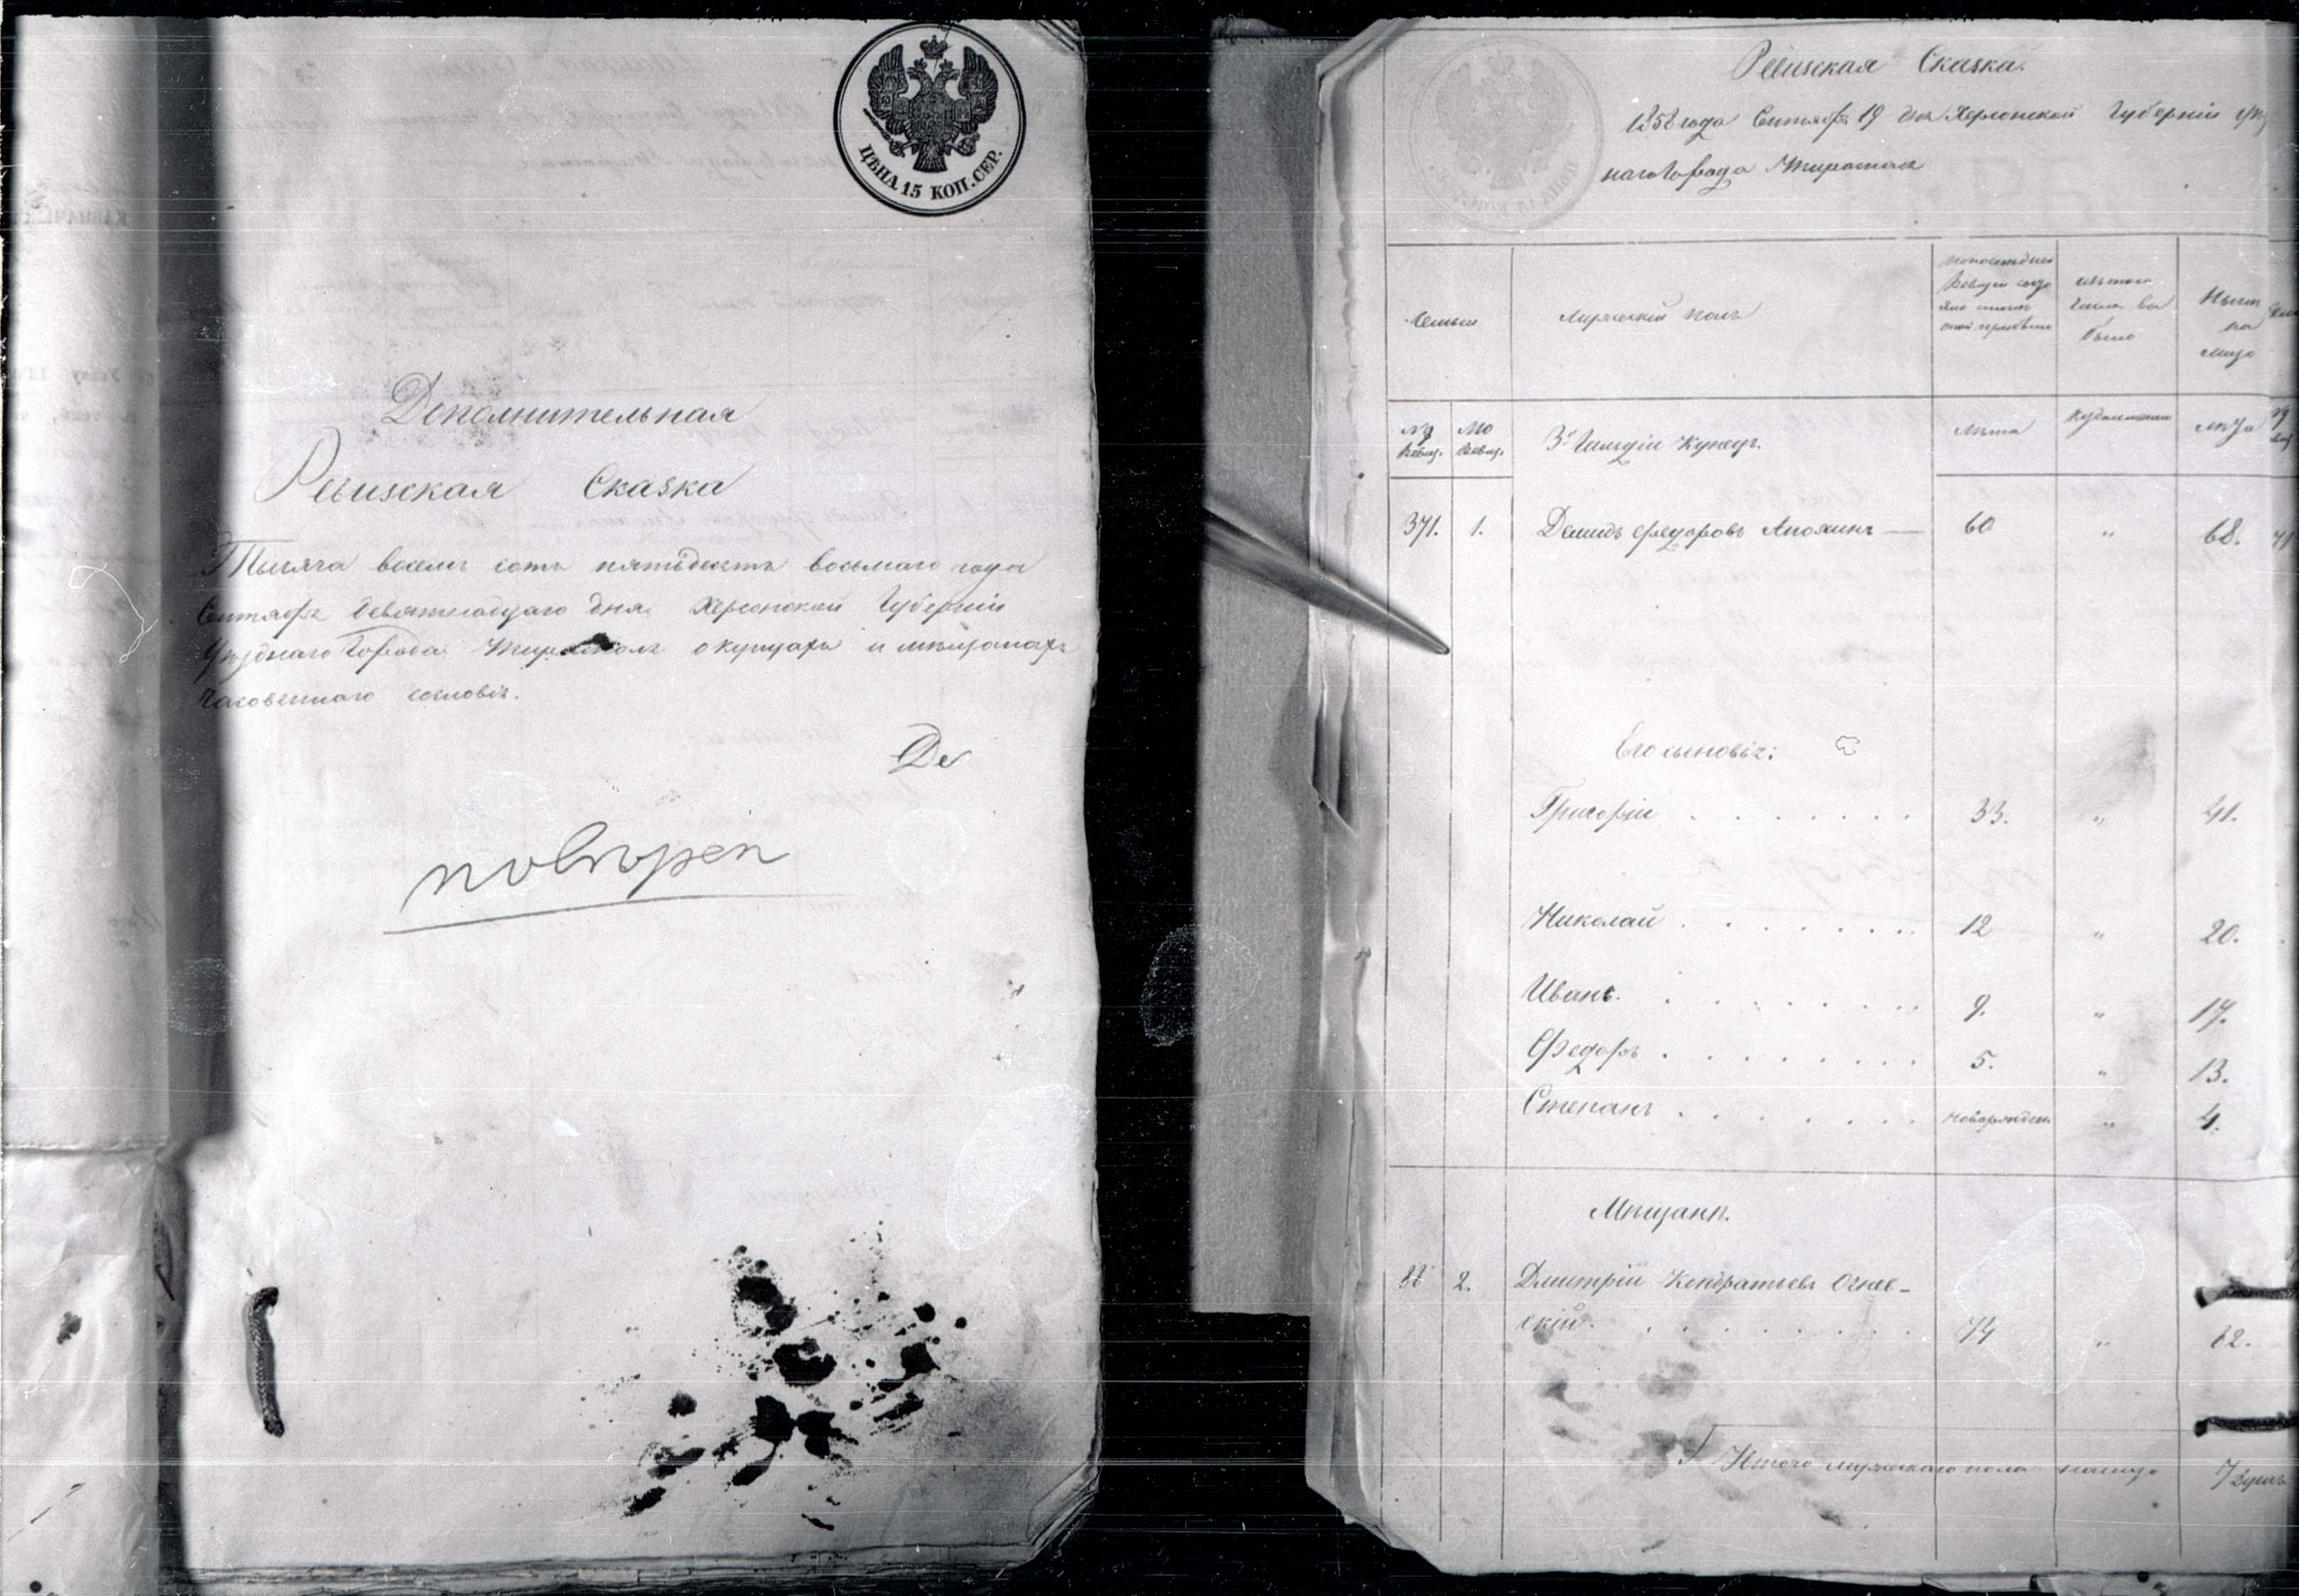 ЦѢНА 15 КОП. СЕР.
Дополнительная
Ревизская Сказка
Тысяча восемь сотъ пятьдесятъ восьмаго года
Сентября девятнадцаго дня Херсонской Губерніи
Уѣзднаго Города Тирасполя о купцахъ и мѣщанахъ
часовеннаго сословія.
Де
повторен
Ревизская Сказка.
1858 года Сентября 19 дня Херсонской Губерніи Уѣзд
наго Города Тирасполя
Семьи
Мужескій полъ
изътого
числа вы
было
Нынѣ
на
лицо
№ Ревиз.
№ Ревиз.
3й Гильдіи Купецъ.
лѣта
лѣта
371. 1. Демидъ Федоровъ Апохинъ — 60 " 68.
Его сыновья:
Григорій . . . . . . . 33. " 41.
Николай . . . . . . . 12 " 20.
Иванъ . . . . . . . 9. " 17.
Федоръ . . . . . . . 5. " 13.
Степанъ . . . . . . . новорожден. " 4.
Мѣщане.
88 2. Дмитрій Кондратьевъ Огнев-
скій . . . . . . . 74 " 82.
Итого мужескаго пола налицо 7 душъ